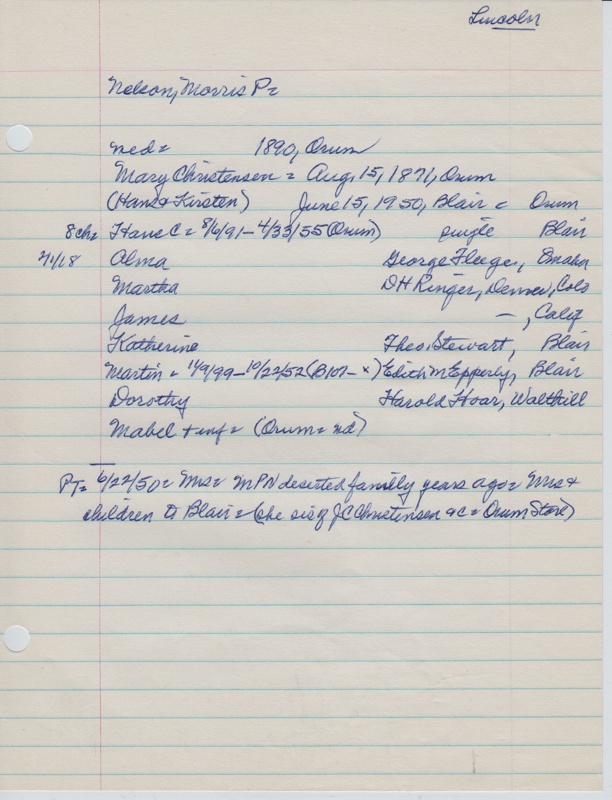 Lincoln
Nelson, Morris P=
ned= 1890, Orum
Mary Christensen = Aug, 15, 1871, Orum
(Hans & Kirsten) June 15, 1950, Blair = Orum
8ch= Hans C = 8/6/91 - 4/33/55 (Orum) single Blair
Alma George Fleege, Omaha
Martha DH Ringer, Denver, Colo
James —, Calif
Katherine Theo. Stewart, Blair
Martin = 11/9/99 - 10/22/52 (B107 - x) Edith M Epperly, Blair
Dorothy Harold Hoar, Walthill
Mabel + inf = (Orum = nd)
PT= 6/22/50 = Mrs = MPN deserted family years ago = Mrs &
children to Blair = (she sis of JC Christensen &c = Orum Store)